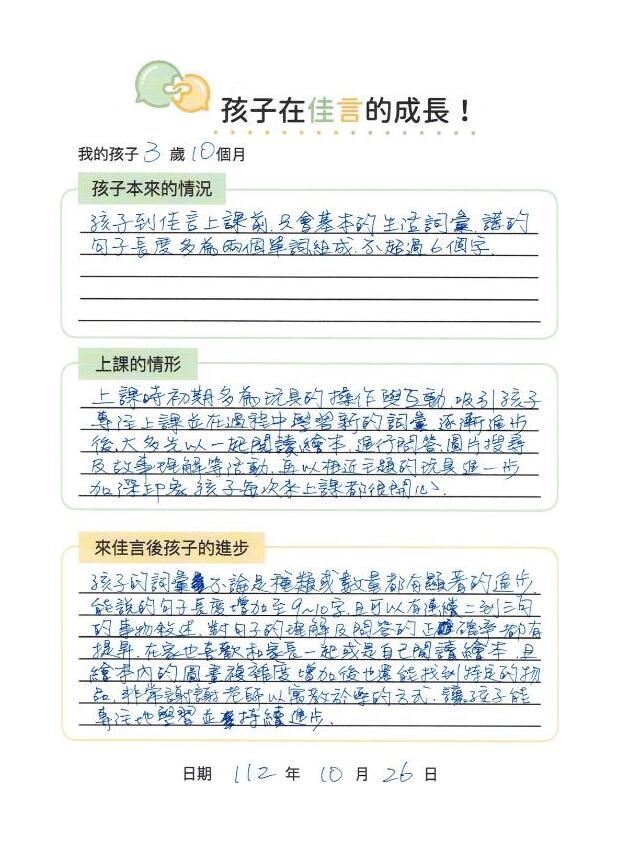 孩子在佳言的成長！
我的孩子 3 歲 10 個月
孩子本來的情況
孩子到佳言上課前,只會基本的生活詞彙,講的
句子長度多為兩個單詞組成,不超過6個字.
上課的情形
上課時初期多為玩具的操作與互動,吸引孩子
專注上課並在過程中學習新的詞彙,逐漸進步
後,大多先以一起閱讀繪本,進行問答,圖片搜尋
及故事理解等活動,再以相近主題的玩具進一步
加深印象,孩子每次來上課都很開心.
來佳言後孩子的進步
孩子的詞彙不論是種類或數量都有顯著的進步,
能說的句子長度增加至9~10字,且可以有連續二到三句
的事物敘述,對句子的理解及問答的正確率都有
提昇,在家也喜歡和家長一起或是自己閱讀繪本,且
繪本內的圖畫複雜度增加後也還能找到特定的物
品,非常謝謝老師以寓教於樂的方式,讓孩子能
專注地學習並持續進步.
日期 112 年 10 月 26 日